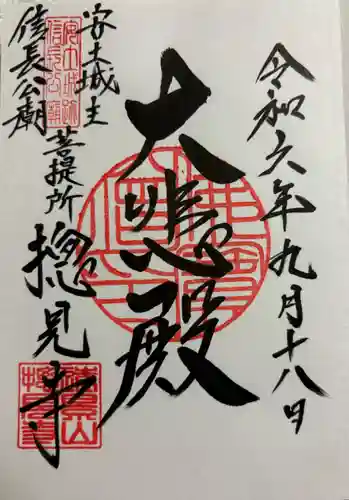 令和六年九月十八日
大悲殿
安土城主
信長公廟
菩提所
摠見寺
安土城跡
信長公廟